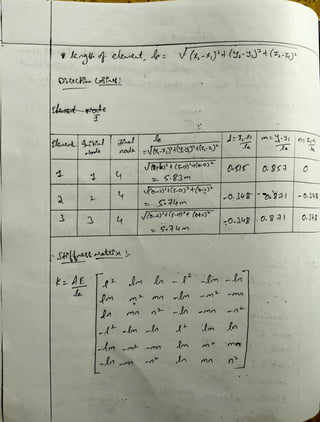 * length of element, le = √(x₂-x₁)²+(y₂-y₁)²+(z₂-z₁)²
Direction Cosines:
Element Initial node final node le =√(x₂-x₁)²+(y₂-y₁)²+(z₂-z₁)² l = x₂-x₁/le m = y₂-y₁/le n = z₂-z₁/le
1 1 4 = 5.83m 0.515 0.857 0
2 2 4 = 5.74m -0.348 0.871 -0.348
3 3 4 = 5.74m -0.348 0.871 0.348
Stiffness Matrix :-
K = AE/le
l² lm ln -l² -lm -ln
lm m² mn -lm -m² -mn
ln mn n² -ln -mn -n²
-l² -lm -ln l² lm ln
-lm -m² -mn lm m² mn
-ln -mn -n² ln mn n²